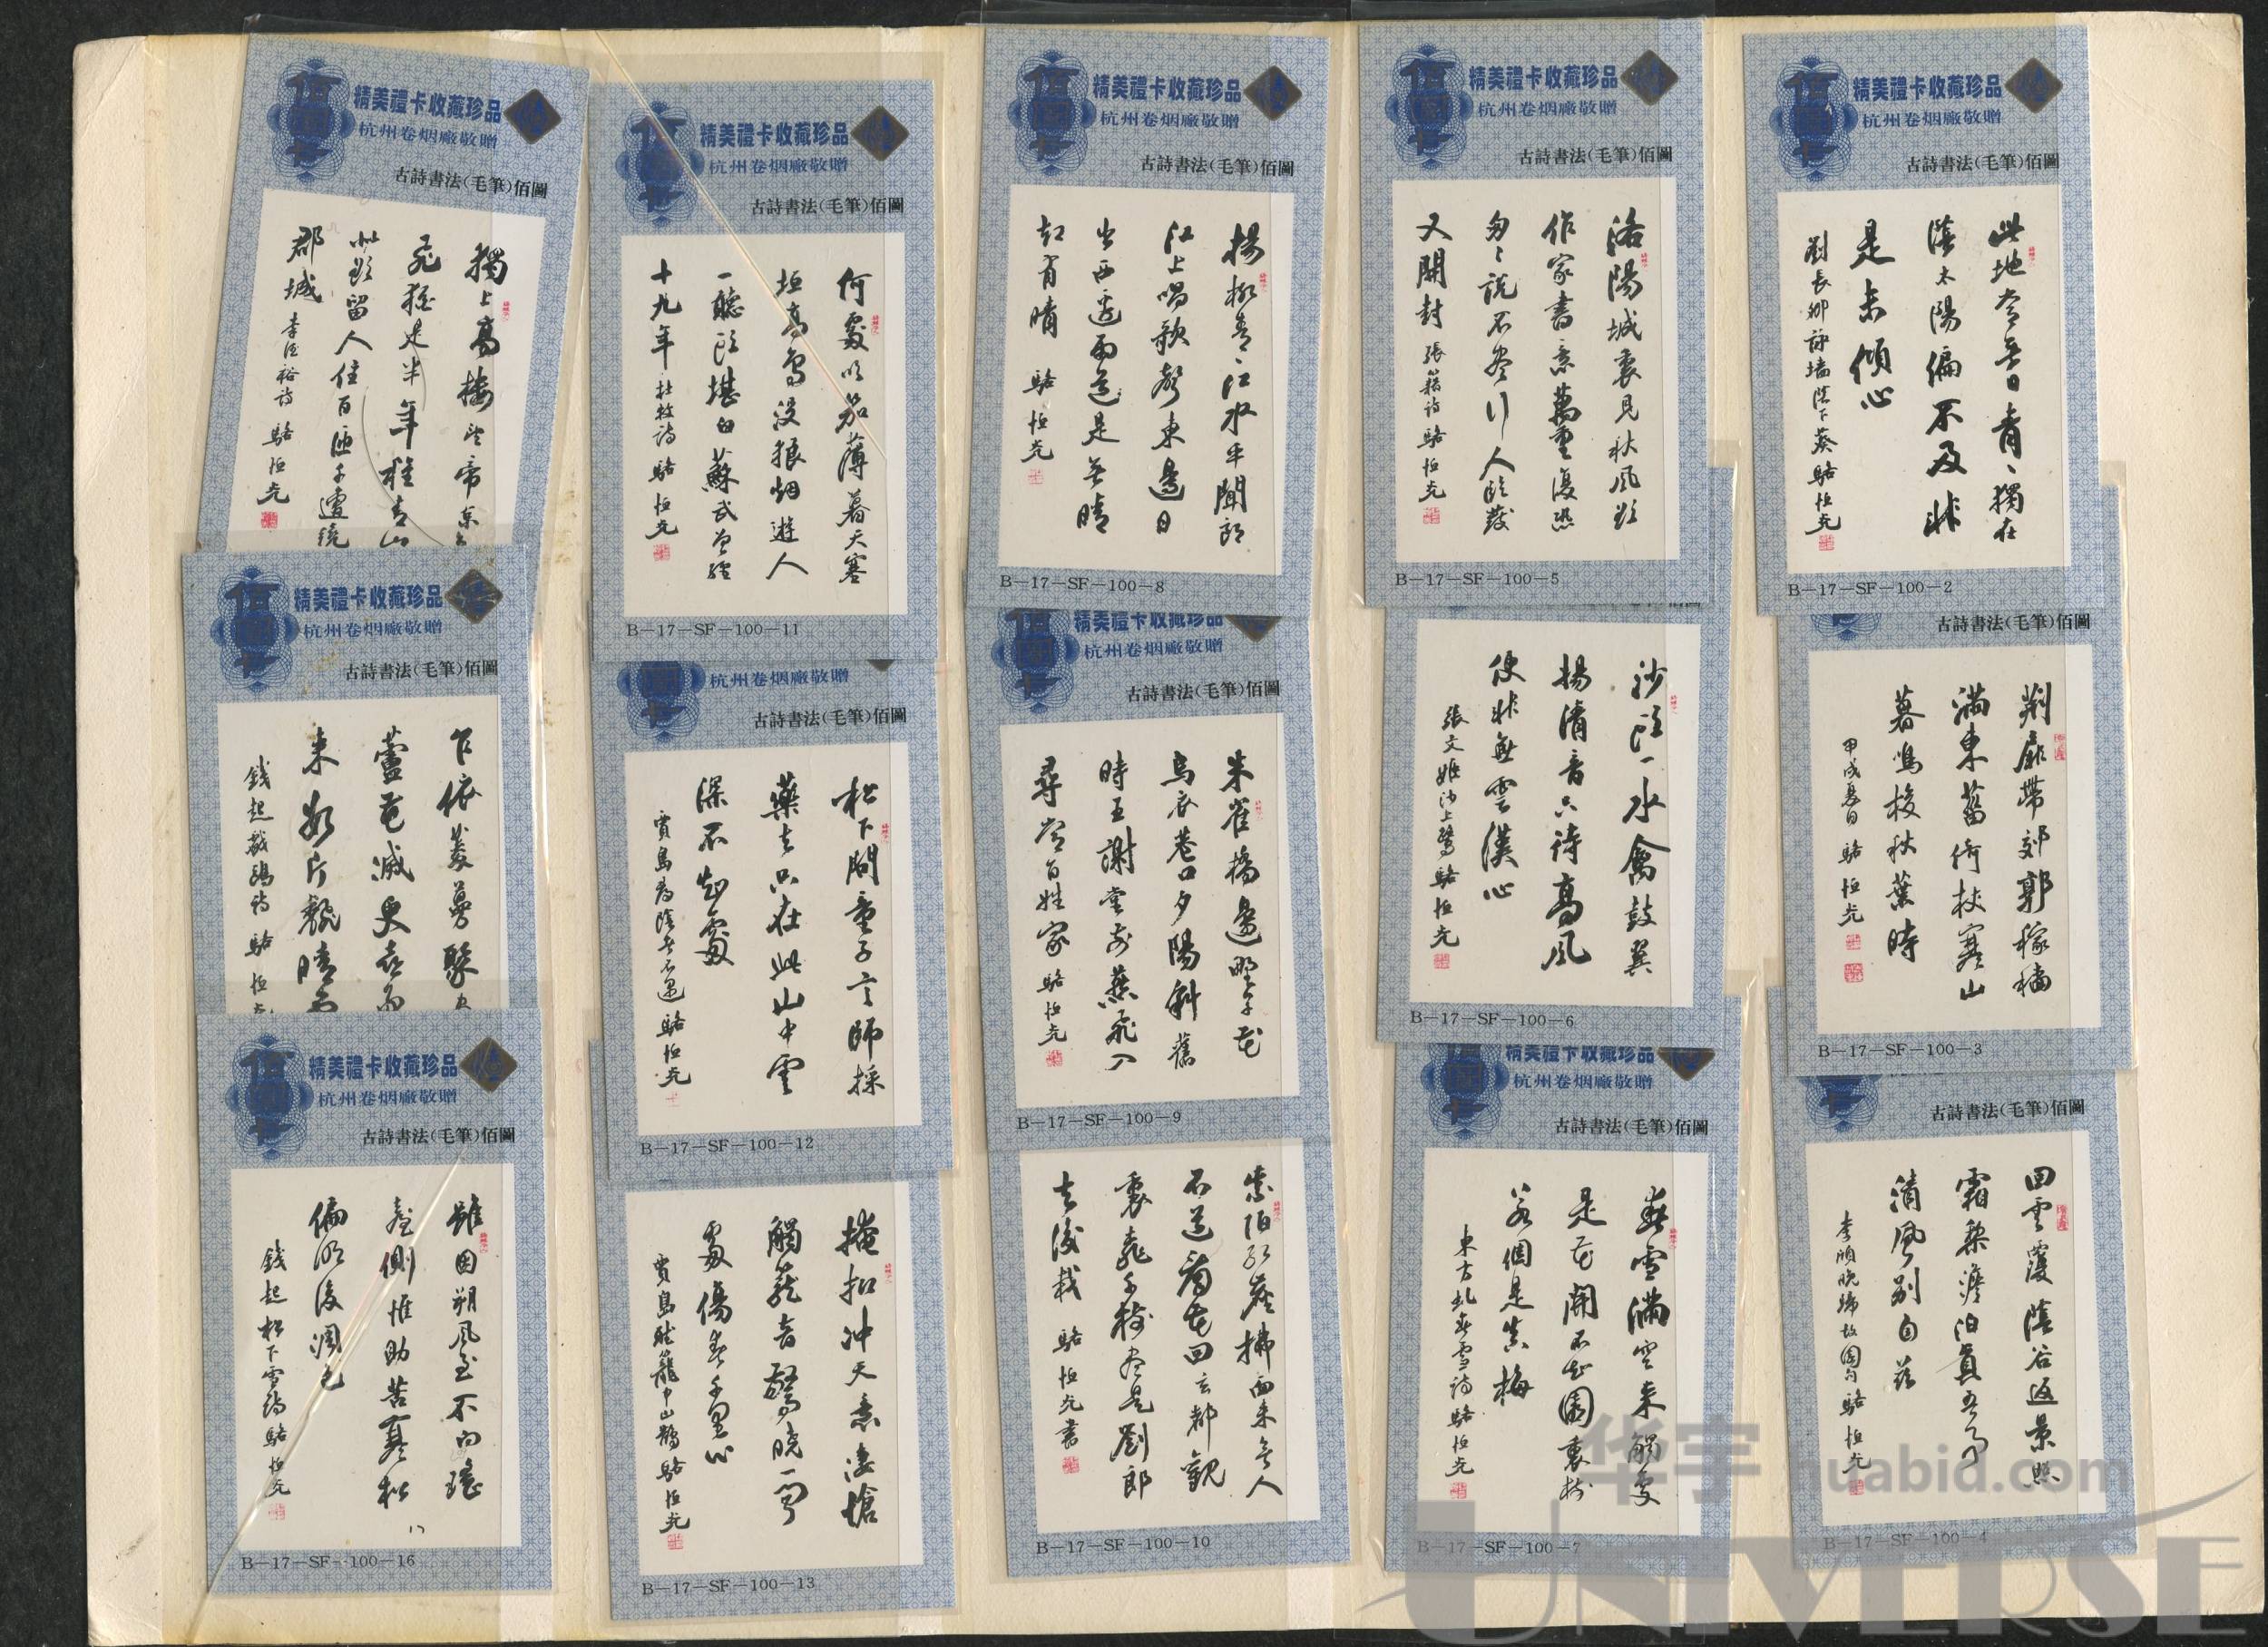 精美禮卡收藏珍品
杭州卷烟廠敬贈
古詩書法(毛筆)佰圖
此地常無日青々獨在
陰太陽偏不及非
是未傾心
劉長卿詠墻陰下葵駱恒光
B－17－SF－100－2
古詩書法(毛筆)佰圖
荆扉帶郊郭稼穡
滿東菑倚杖寒山
暮鳴梭秋葉時
甲戌夏日駱恒光
B－17－SF－100－3
古詩書法(毛筆)佰圖
回雲覆陰谷返景照
霜梨澹泊真吾事
清風别自兹
李頎晚歸故園句駱恒光
B－17－SF－100－4
精美禮卡收藏珍品
杭州卷烟廠敬贈
古詩書法(毛筆)佰圖
洛陽城裏見秋風欲
作家書意萬重復恐
匆々説不盡行人臨發
又開封 張籍詩駱恒光
B－17－SF－100－5
沙頭一水禽鼓翼
揚清音只待高風
便非無雲漢心
張文姬沙上鷺駱恒光
B－17－SF－100－6
精美禮卡收藏珍品
杭州卷烟廠敬贈
古詩書法(毛筆)佰圖
春雪滿空來觸處
是花開不知園裏樹
若個是真梅
東方虬春雪詩駱恒光
B－17－SF－100－7
精美禮卡收藏珍品
杭州卷烟廠敬贈
古詩書法(毛筆)佰圖
楊柳青々江水平聞郎
江上唱歌聲東邊日
出西邊雨道是無晴
却有晴 駱恒光
B－17－SF－100－8
精美禮卡收藏珍品
杭州卷烟廠敬贈
古詩書法(毛筆)佰圖
朱雀橋邊野草花
烏衣巷口夕陽斜舊
時王謝堂前燕飛入
尋常百姓家駱恒光
B－17－SF－100－9
紫陌紅塵拂面來無人
不道看花回玄都觀
裏桃千樹盡是劉郎
去後栽 駱恒光書
B－17－SF－100－10
精美禮卡收藏珍品
杭州卷烟廠敬贈
古詩書法(毛筆)佰圖
何處吹笳薄暮天塞
垣高鳥没狼烟遊人
一聽頭堪白蘇武争經
十九年 杜牧詩駱恒光
B－17－SF－100－11
杭州卷烟廠敬贈
古詩書法(毛筆)佰圖
松下問童子言師採
藥去只在此山中雲
深不知處
賈島尋隱者不遇駱恒光
B－17－SF－100－12
掩抑冲天意凄愴
觸籠音驚曉一聞
處傷春千里心
賈島 籠中山鵲駱恒光
B－17－SF－100－13
精美禮卡收藏珍品
杭州卷烟廠敬贈
古詩書法(毛筆)佰圖
獨上高樓望帝京鳥
飛猶是半年程青山
似欲留人住百匝千遭繞
郡城 李德裕詩 駱恒光
精美禮卡收藏珍品
杭州卷烟廠敬贈
古詩書法(毛筆)佰圖
乍依菱蔓聚
蘆花滅更喜
來如片飄晴
錢起戲鷗詩駱恒光
精美禮卡收藏珍品
杭州卷烟廠敬贈
古詩書法(毛筆)佰圖
雖因朔風至不向瑤
臺側惟助苦寒松
偏明後凋色
錢起松下雪詩駱恒光
B－17－SF－100－16
华宇 huabid.com
UNIVERSE